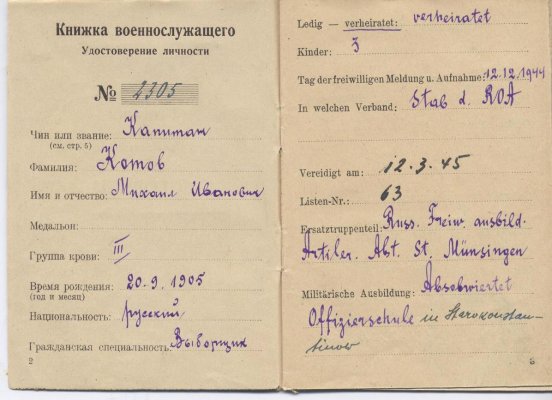 Книжка военнослужащего
Удостоверение личности
№ 2305
Чин или звание: Капитан
(см. стр. 5)
Фамилия: Котов
Имя и отчество: Михаил Иванович
Медальон:
Группа крови: III
Время рождения: 20.9.1905
(год и месяц)
Национальность: русский
Гражданская специальность: Выборщик
2
Ledig — verheiratet: verheiratet
Kinder: 3
Tag der freiwilligen Meldung u. Aufnahme: 12.12.1944
In welchen Verband: Stab d. ROA
Vereidigt am: 12.3.45
Listen-Nr.: 63
Ersatztruppenteil: Russ. Freiw. ausbild.
Artiler. Abt. St. Münsingen
Militärische Ausbildung: Absolwiertet
Offizierschule in Starokonstan-
tinow